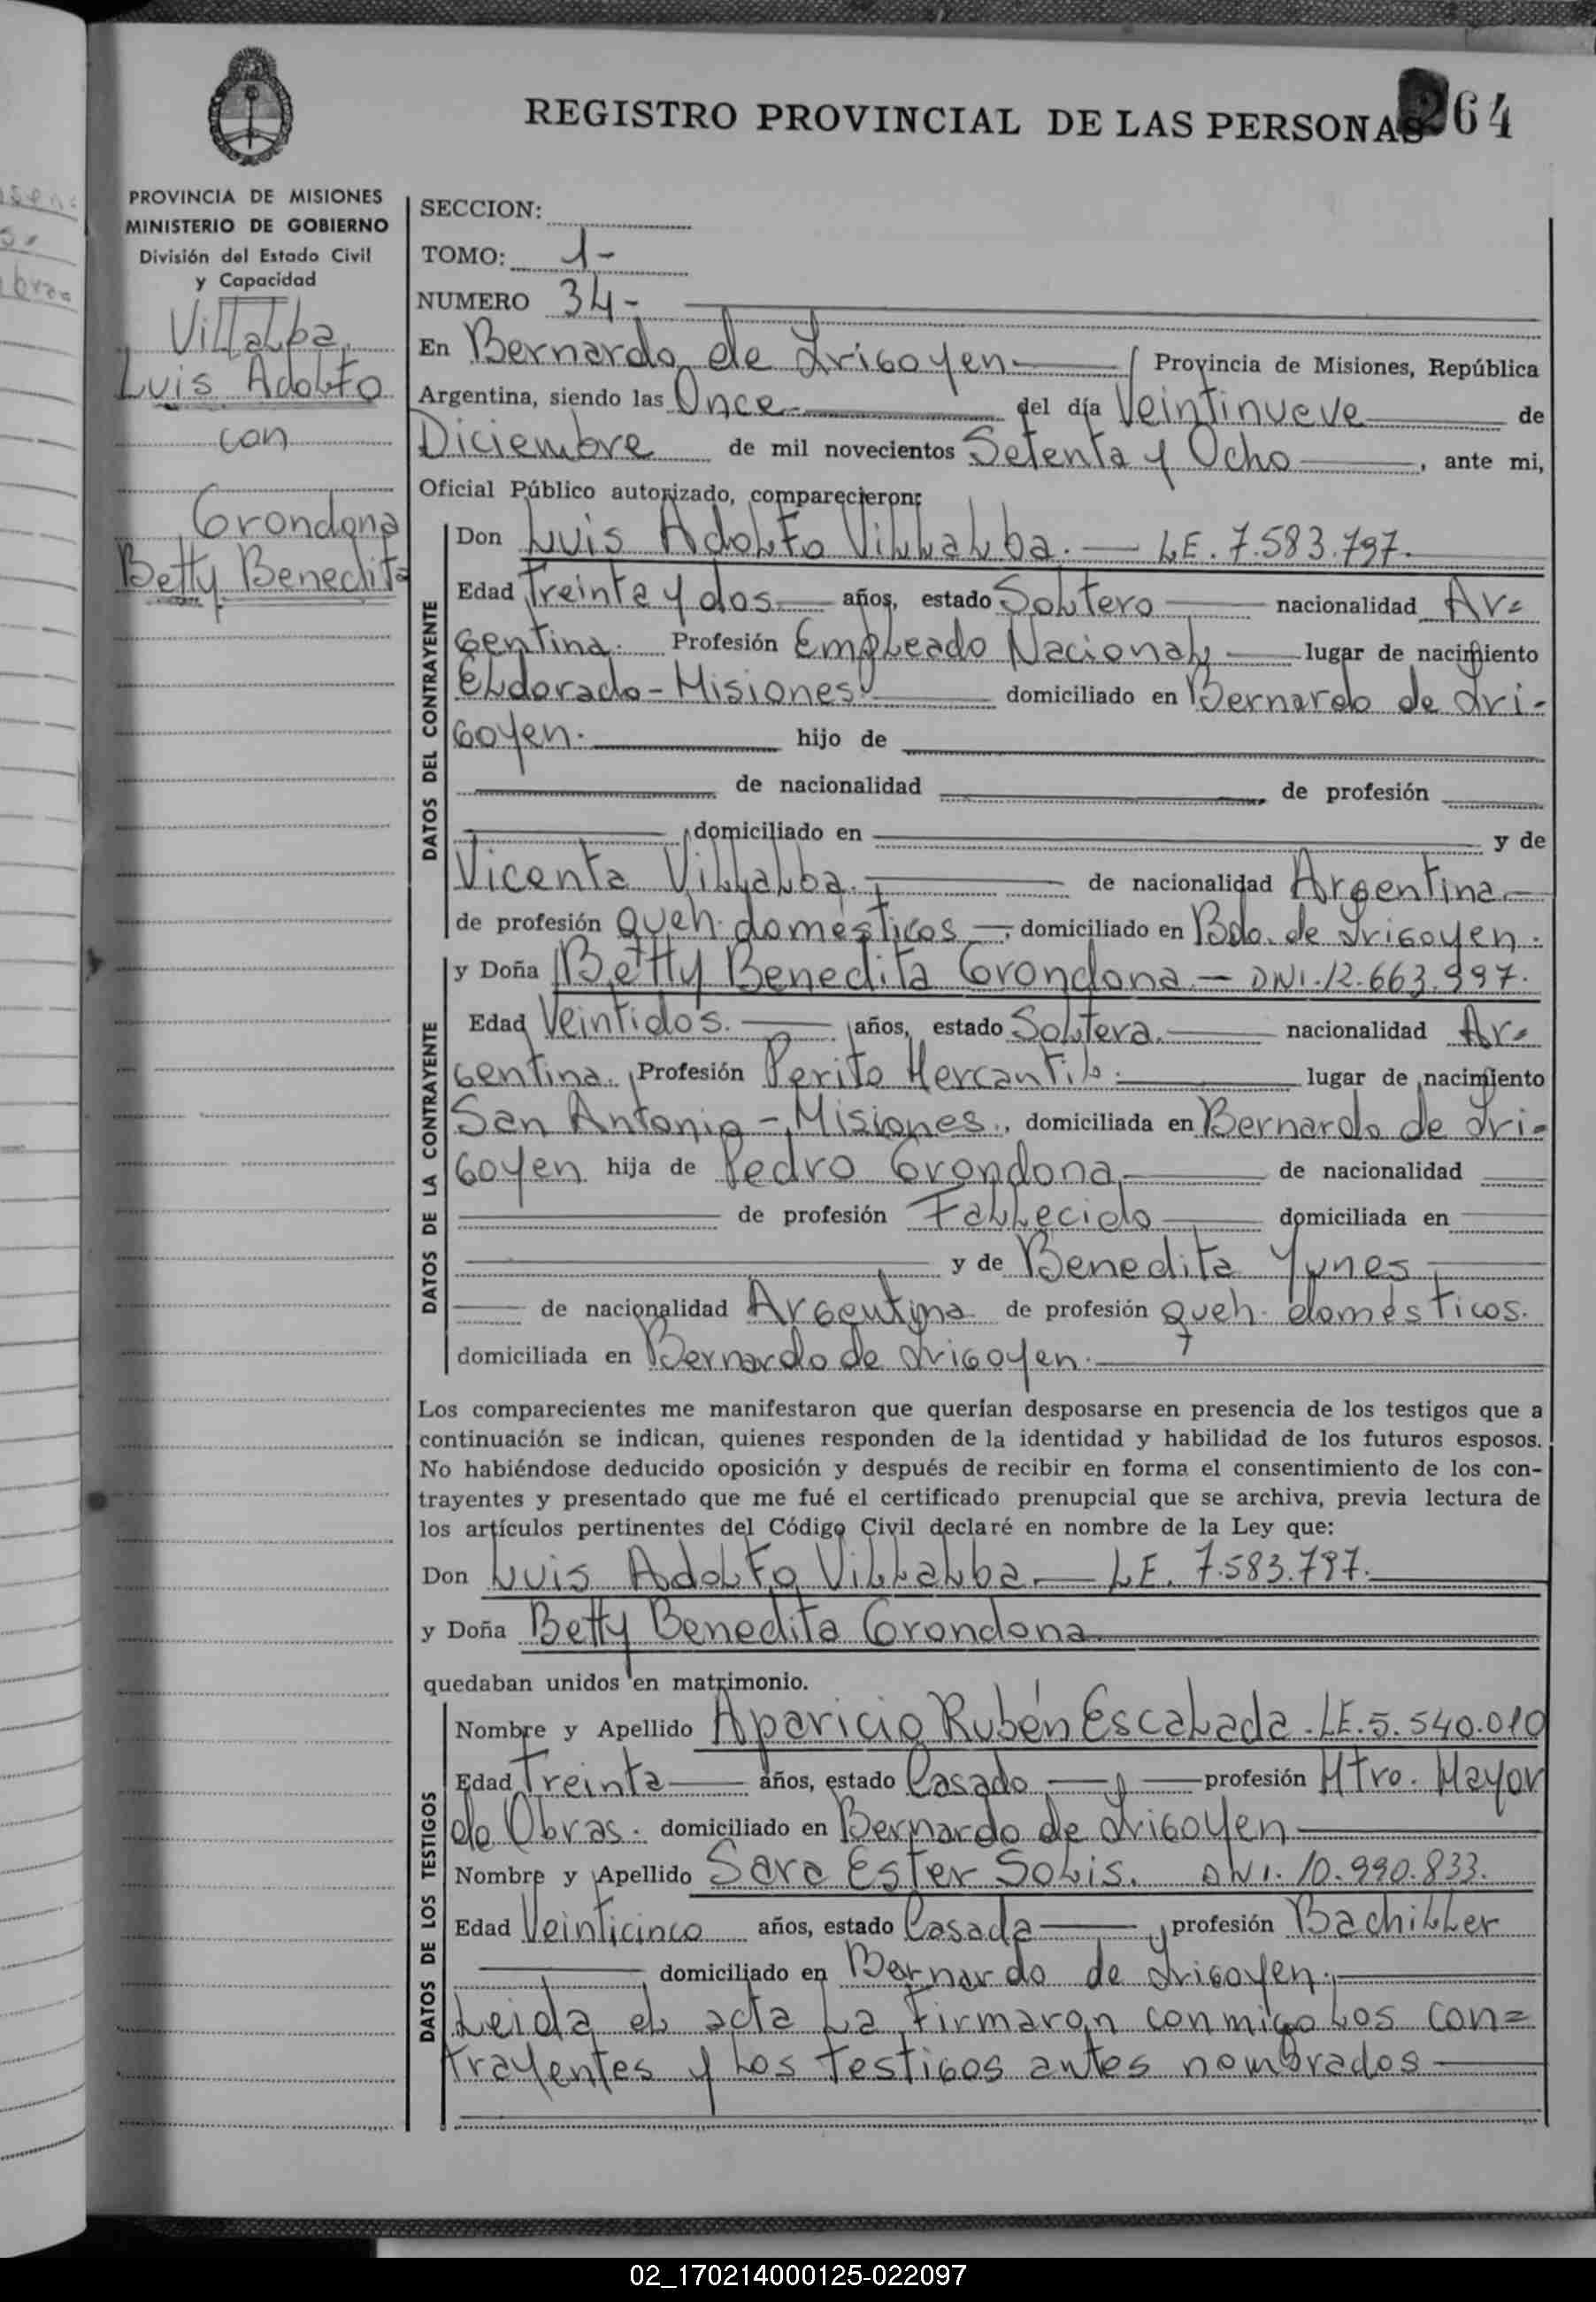 REGISTRO PROVINCIAL DE LAS PERSONAS 264
PROVINCIA DE MISIONES
MINISTERIO DE GOBIERNO
División del Estado Civil
y Capacidad
Villalba
Luis Adolfo
con
Grondona
Betty Benedita
SECCION:
TOMO: 1-
NUMERO 34-
En Bernardo de Irigoyen Provincia de Misiones, República
Argentina, siendo las Once del día Veintinueve de
Diciembre de mil novecientos Setenta y Ocho, ante mi,
Oficial Público autorizado, comparecieron:
DATOS DEL CONTRAYENTE
Don Luis Adolfo Villalba. — LE. 7.583.797.
Edad Treinta y dos años, estado Soltero nacionalidad Ar=
gentina. Profesión Empleado Nacional, lugar de nacimiento
Eldorado-Misiones domiciliado en Bernardo de Iri-
goyen. hijo de
de nacionalidad de profesión
domiciliado en y de
Vicenta Villalba. de nacionalidad Argentina
de profesión queh. domésticos, domiciliado en Bdo. de Irigoyen.
DATOS DE LA CONTRAYENTE
y Doña Betty Benedita Grondona. — DNI. 12.663.997.
Edad Veintidos. años, estado Soltera. nacionalidad Ar=
gentina. Profesión Perito Mercantil. lugar de nacimiento
San Antonio - Misiones., domiciliada en Bernardo de Iri-
goyen hija de Pedro Grondona, de nacionalidad
de profesión Fallecido domiciliada en
y de Benedita Yunes
de nacionalidad Argentina de profesión queh. domésticos.
domiciliada en Bernardo de Irigoyen.
Los comparecientes me manifestaron que querían desposarse en presencia de los testigos que a
continuación se indican, quienes responden de la identidad y habilidad de los futuros esposos.
No habiéndose deducido oposición y después de recibir en forma el consentimiento de los con-
trayentes y presentado que me fué el certificado prenupcial que se archiva, previa lectura de
los artículos pertinentes del Código Civil declaré en nombre de la Ley que:
Don Luis Adolfo Villalba — LE. 7.583.797.
y Doña Betty Benedita Grondona
quedaban unidos en matrimonio.
DATOS DE LOS TESTIGOS
Nombre y Apellido Aparicio Rubén Escalada. LE. 5.540.010
Edad Treinta años, estado Casado, profesión Mtro. Mayor
de Obras. domiciliado en Bernardo de Irigoyen
Nombre y Apellido Sara Ester Solis. DNI. 10.990.833.
Edad Veinticinco años, estado Casada, profesión Bachiller
domiciliado en Bernardo de Irigoyen.
Leida el acta la firmaron conmigo los con=
trayentes y los testigos antes nombrados
02_170214000125-022097